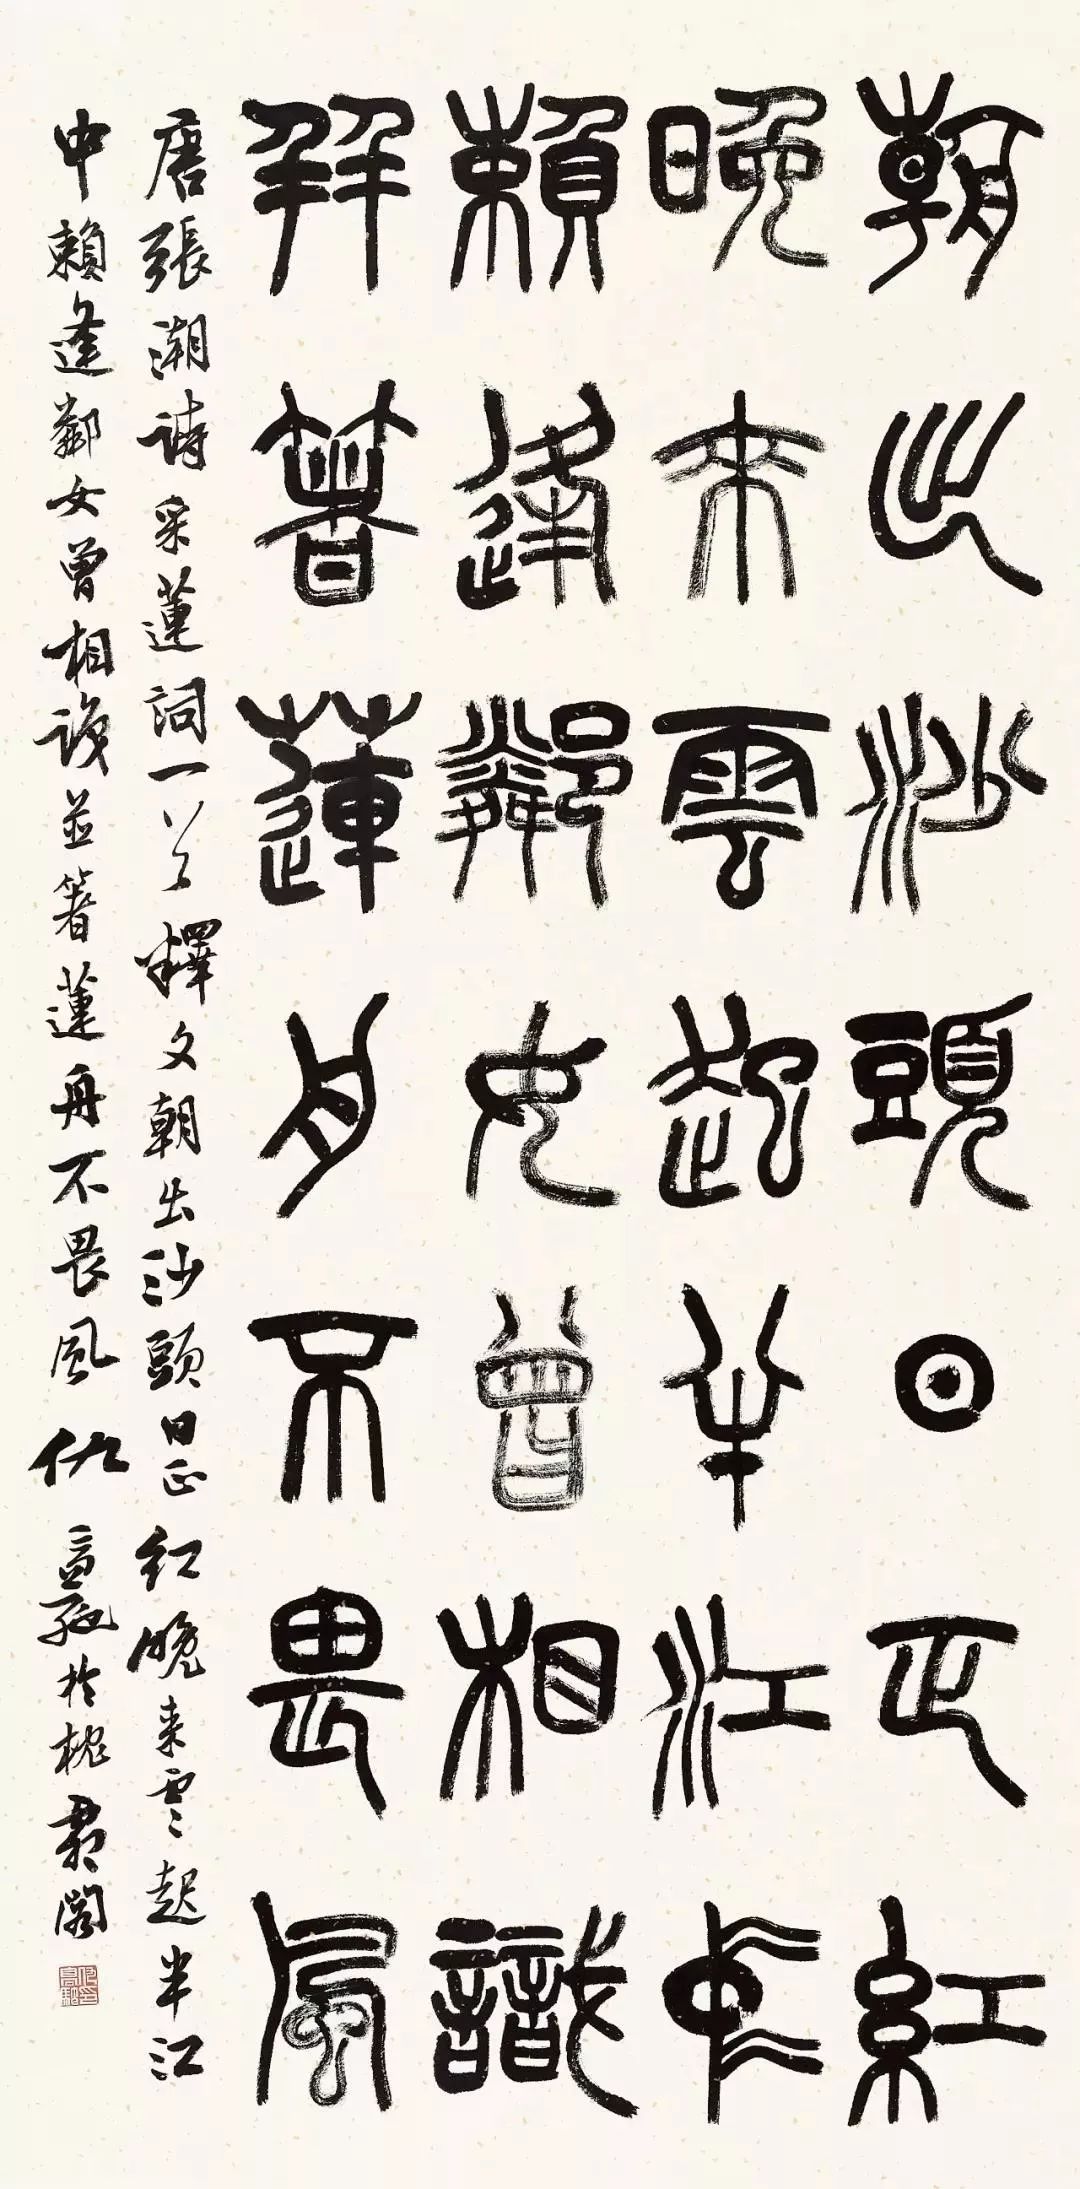 朝出沙頭日正紅
晚來雲起半江中
賴逢鄰女曾相識
并著蓮舟不畏風
唐張潮詩采蓮詞一首釋文朝出沙頭日正紅晚來雲起半江
中賴逢鄰女曾相識並著蓮舟不畏風仇高馳於槐君閣